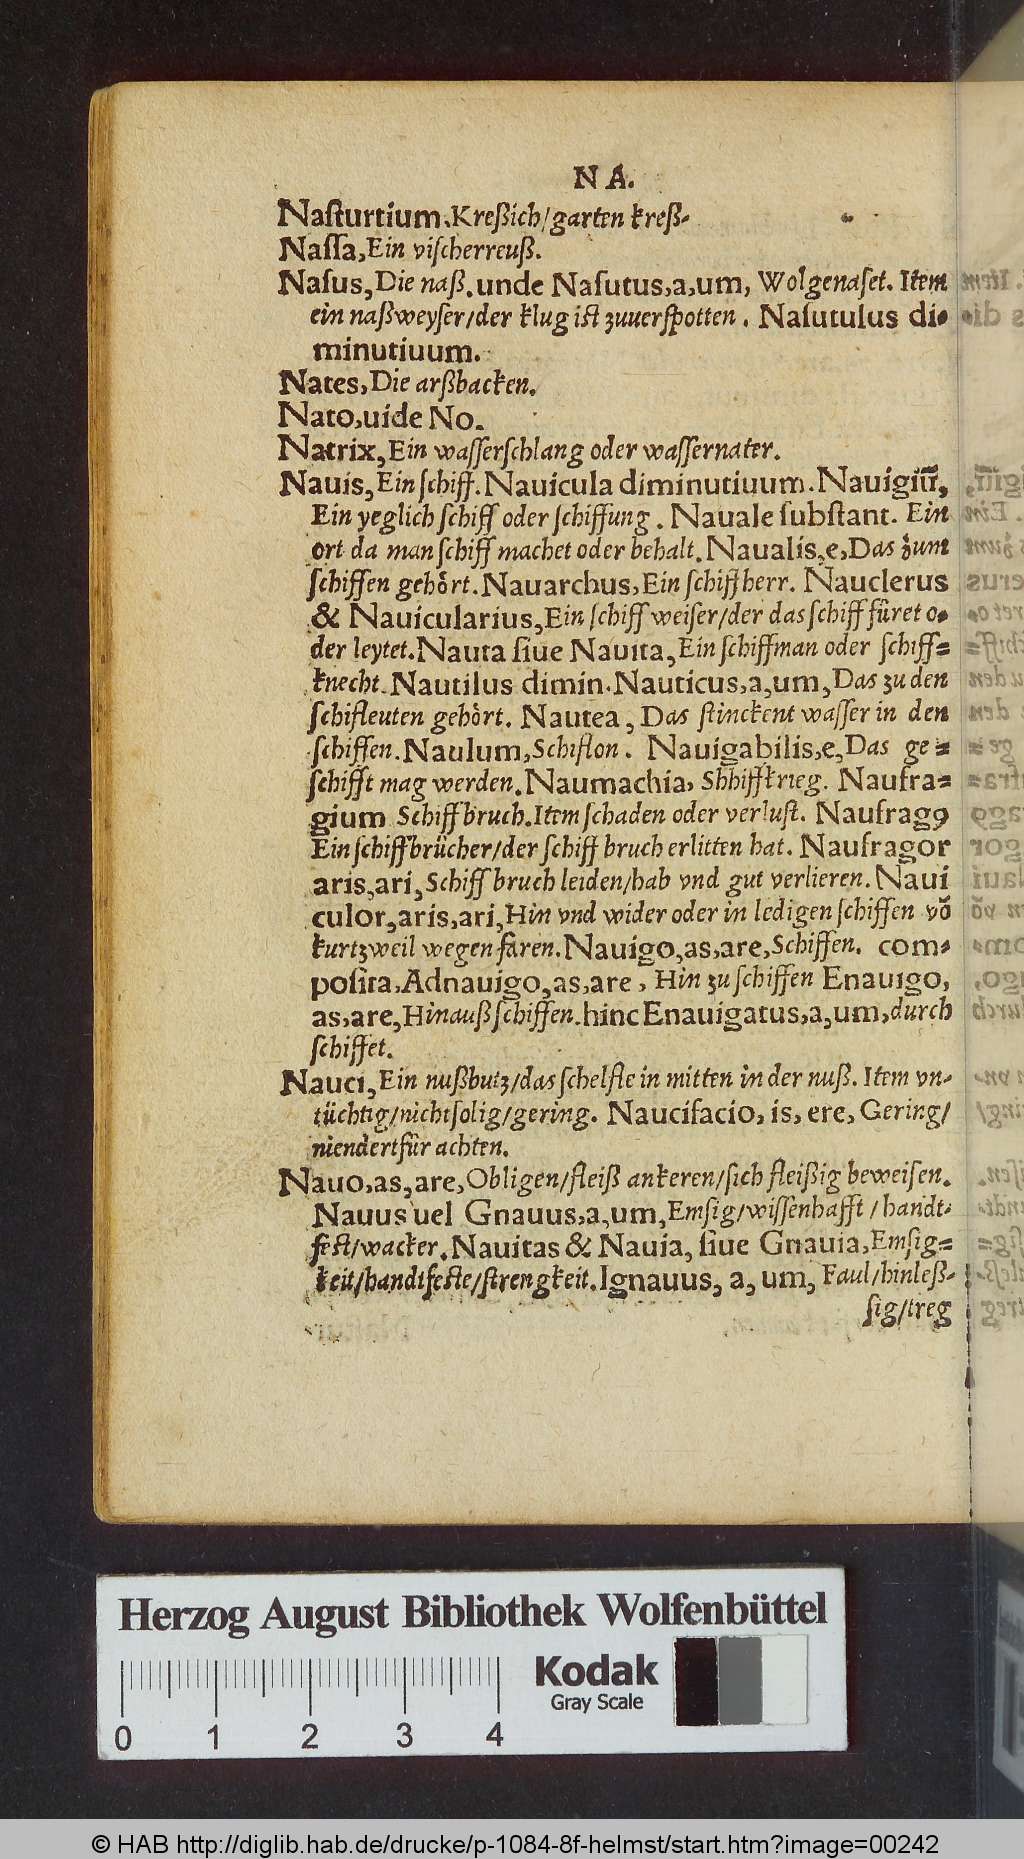 N A.
Naſturtium, Kreßich/garten kreß-
Naſſa, Ein viſcherreuß.
Naſus, Die naß. unde Naſutus, a, um, Wolgenaſet. Item
ein naßweyſer/der klug iſt zuuerſpotten. Naſutulus di-
minutiuum.
Nates, Die arßbacken.
Nato, uide No.
Natrix, Ein waſſerſchlang oder waſſernater.
Nauis, Ein ſchiff. Nauicula diminutiuum. Nauigiũ,
Ein yeglich ſchiff oder ſchiffung. Nauale ſubſtant. Ein
ort da man ſchiff machet oder behalt. Naualis, e, Das zům
ſchiffen gehört. Nauarchus, Ein ſchiffherr. Nauclerus
& Nauicularius, Ein ſchiff weiſer/der das ſchiff fůret o-
der leytet. Nauta ſiue Nauita, Ein ſchiffman oder ſchiff=
knecht. Nautilus dimin. Nauticus, a, um, Das zu den
ſchifleuten gehört. Nautea, Das ſtinckent waſſer in den
ſchiffen. Naulum, Schiflon. Nauigabilis, e, Das ge=
ſchifft mag werden. Naumachia, Shhiffkrieg. Naufra=
gium Schiffbruch. Item ſchaden oder verluſt. Naufragꝯ
Ein ſchiffbrücher/der ſchiff bruch erlitten hat. Naufragor
aris, ari, Schiff bruch leiden/hab vnd gut verlieren. Naui
culor, aris, ari, Hin vnd wider oder in ledigen ſchiffen võ
kurtzweil wegen faren. Nauigo, as, are, Schiffen. com-
poſita, Adnauigo, as, are, Hin zu ſchiffen Enauigo,
as, are, Hinauß ſchiffen. hinc Enauigatus, a, um, durch
ſchiffet.
Nauci, Ein nußbutz/das ſchelfle in mitten in der nuß. Item vn-
tüchtig/nichtſolig/gering. Naucifacio, is, ere, Gering/
niendertfür achten.
Nauo, as, are, Obligen/fleiß ankeren/ſich fleißig beweiſen.
Nauus uel Gnauus, a, um, Emſig/wiſſenhafft/handt-
feſt/wacker. Nauitas & Nauia, ſiue Gnauia, Emſig=
keit/handtfeſte/ſtrengkeit. Ignauus, a, um, Faul/hinleß-
ſig/treg
Herzog August Bibliothek Wolfenbüttel
Kodak
Gray Scale
0 1 2 3 4
© HAB http://diglib.hab.de/drucke/p-1084-8f-helmst/start.htm?image=00242